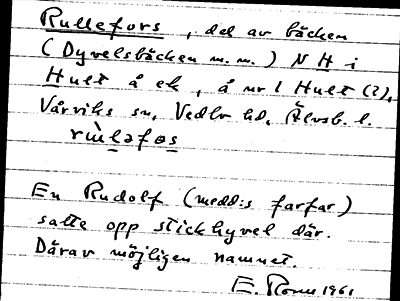 Rullefors, del av bäcken
(Dyvelsbäcken m.m.) N H i
Hult å ek, å nr 1 Hult (2),
Vårviks sn, Vedbo hd, Älvsb. l.
rùləfɷs
En Rudolf (medd:s farfar)
satte opp stickhyvel där.
Därav möjligen namnet.
E. 1961